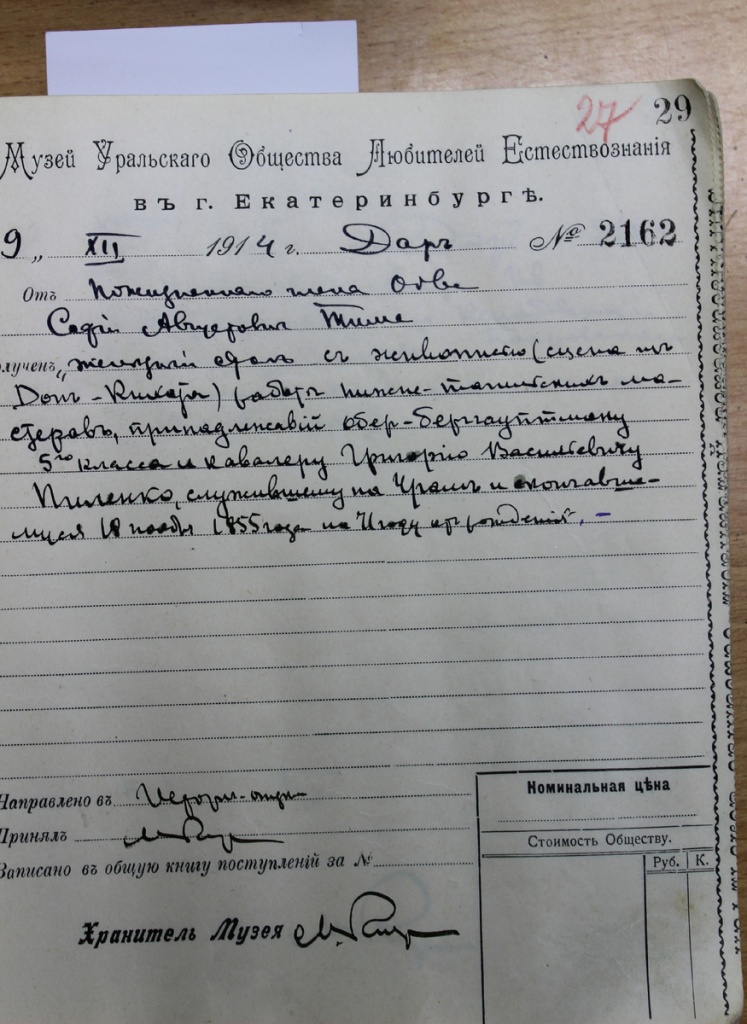 27 29
Музей Уральскаго Общества Любителей Естествознанія
въ г. Екатеринбургѣ.
9 „ XII 1914 г. Даръ № 2162
Отъ Пожизненнаго члена О-ва
Софіи Тиме
лученъ „желѣзный столъ съ живописью (сцена изъ
Донъ-Кихота) работы нижне-тагильскихъ ма-
стеровъ, принадлежавшій обер-бергауптману
5го класса и кавалеру Григорію Васильевичу
Пиленко, служившему на Уралѣ и скончавше-
муся 18 ноября 1855 года на году отъ рожденія. –
Направлено въ
Принялъ
Записано въ общую книгу поступленій за №
Хранитель Музея М.
Номинальная цѣна
Стоимость Обществу.
Руб. К.